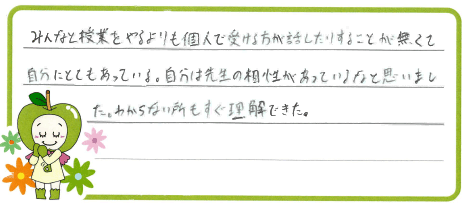 みんなと授業をやるよりも個人で受ける方が話したりすることが無くて
自分にとてもあっている。自分は先生の相性があっているなと思いまし
た。わからない所もすぐ理解できた。